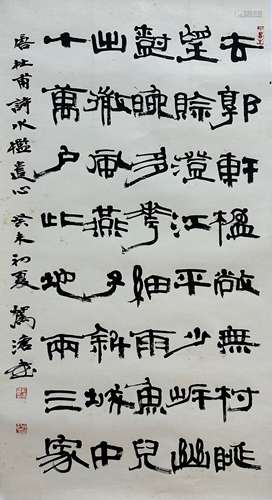 去郭軒楹敞無村眺
望賒澄江平少岸幽
樹晚多花細雨魚兒
出微風燕子斜城中
十萬戶此地兩三家
唐杜甫詩水檻遣心 癸未初夏 滄書